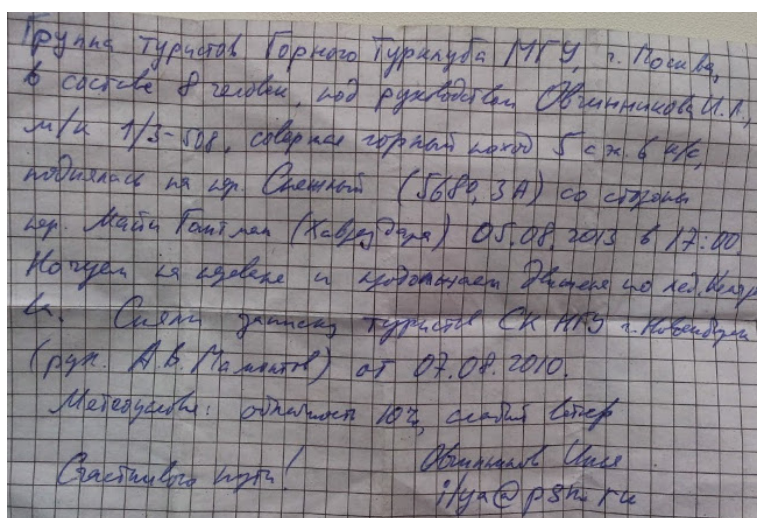 Группа туристов Горного Турклуба МГУ, г. Москва,
в составе 8 человек, под руководством Овчинникова И.Л.,
м/к 1/3-508, совершая горный поход 5 с эл. 6 к/с,
поднялась на пер. Снежный (5680, 3А) со стороны
пер. Майти Гантман (Хаврездара) 05.08.2013 в 17:00.
Ночуем на перевале и продолжаем движение по лед.
Сняли записку туристов СК НГУ г. Новосибирск
(рук. А.В. Мамонтов) от 07.08.2010.
Метеоусловия: облачность 10ч, слабый ветер
Счастливого пути! Овчинников Илья